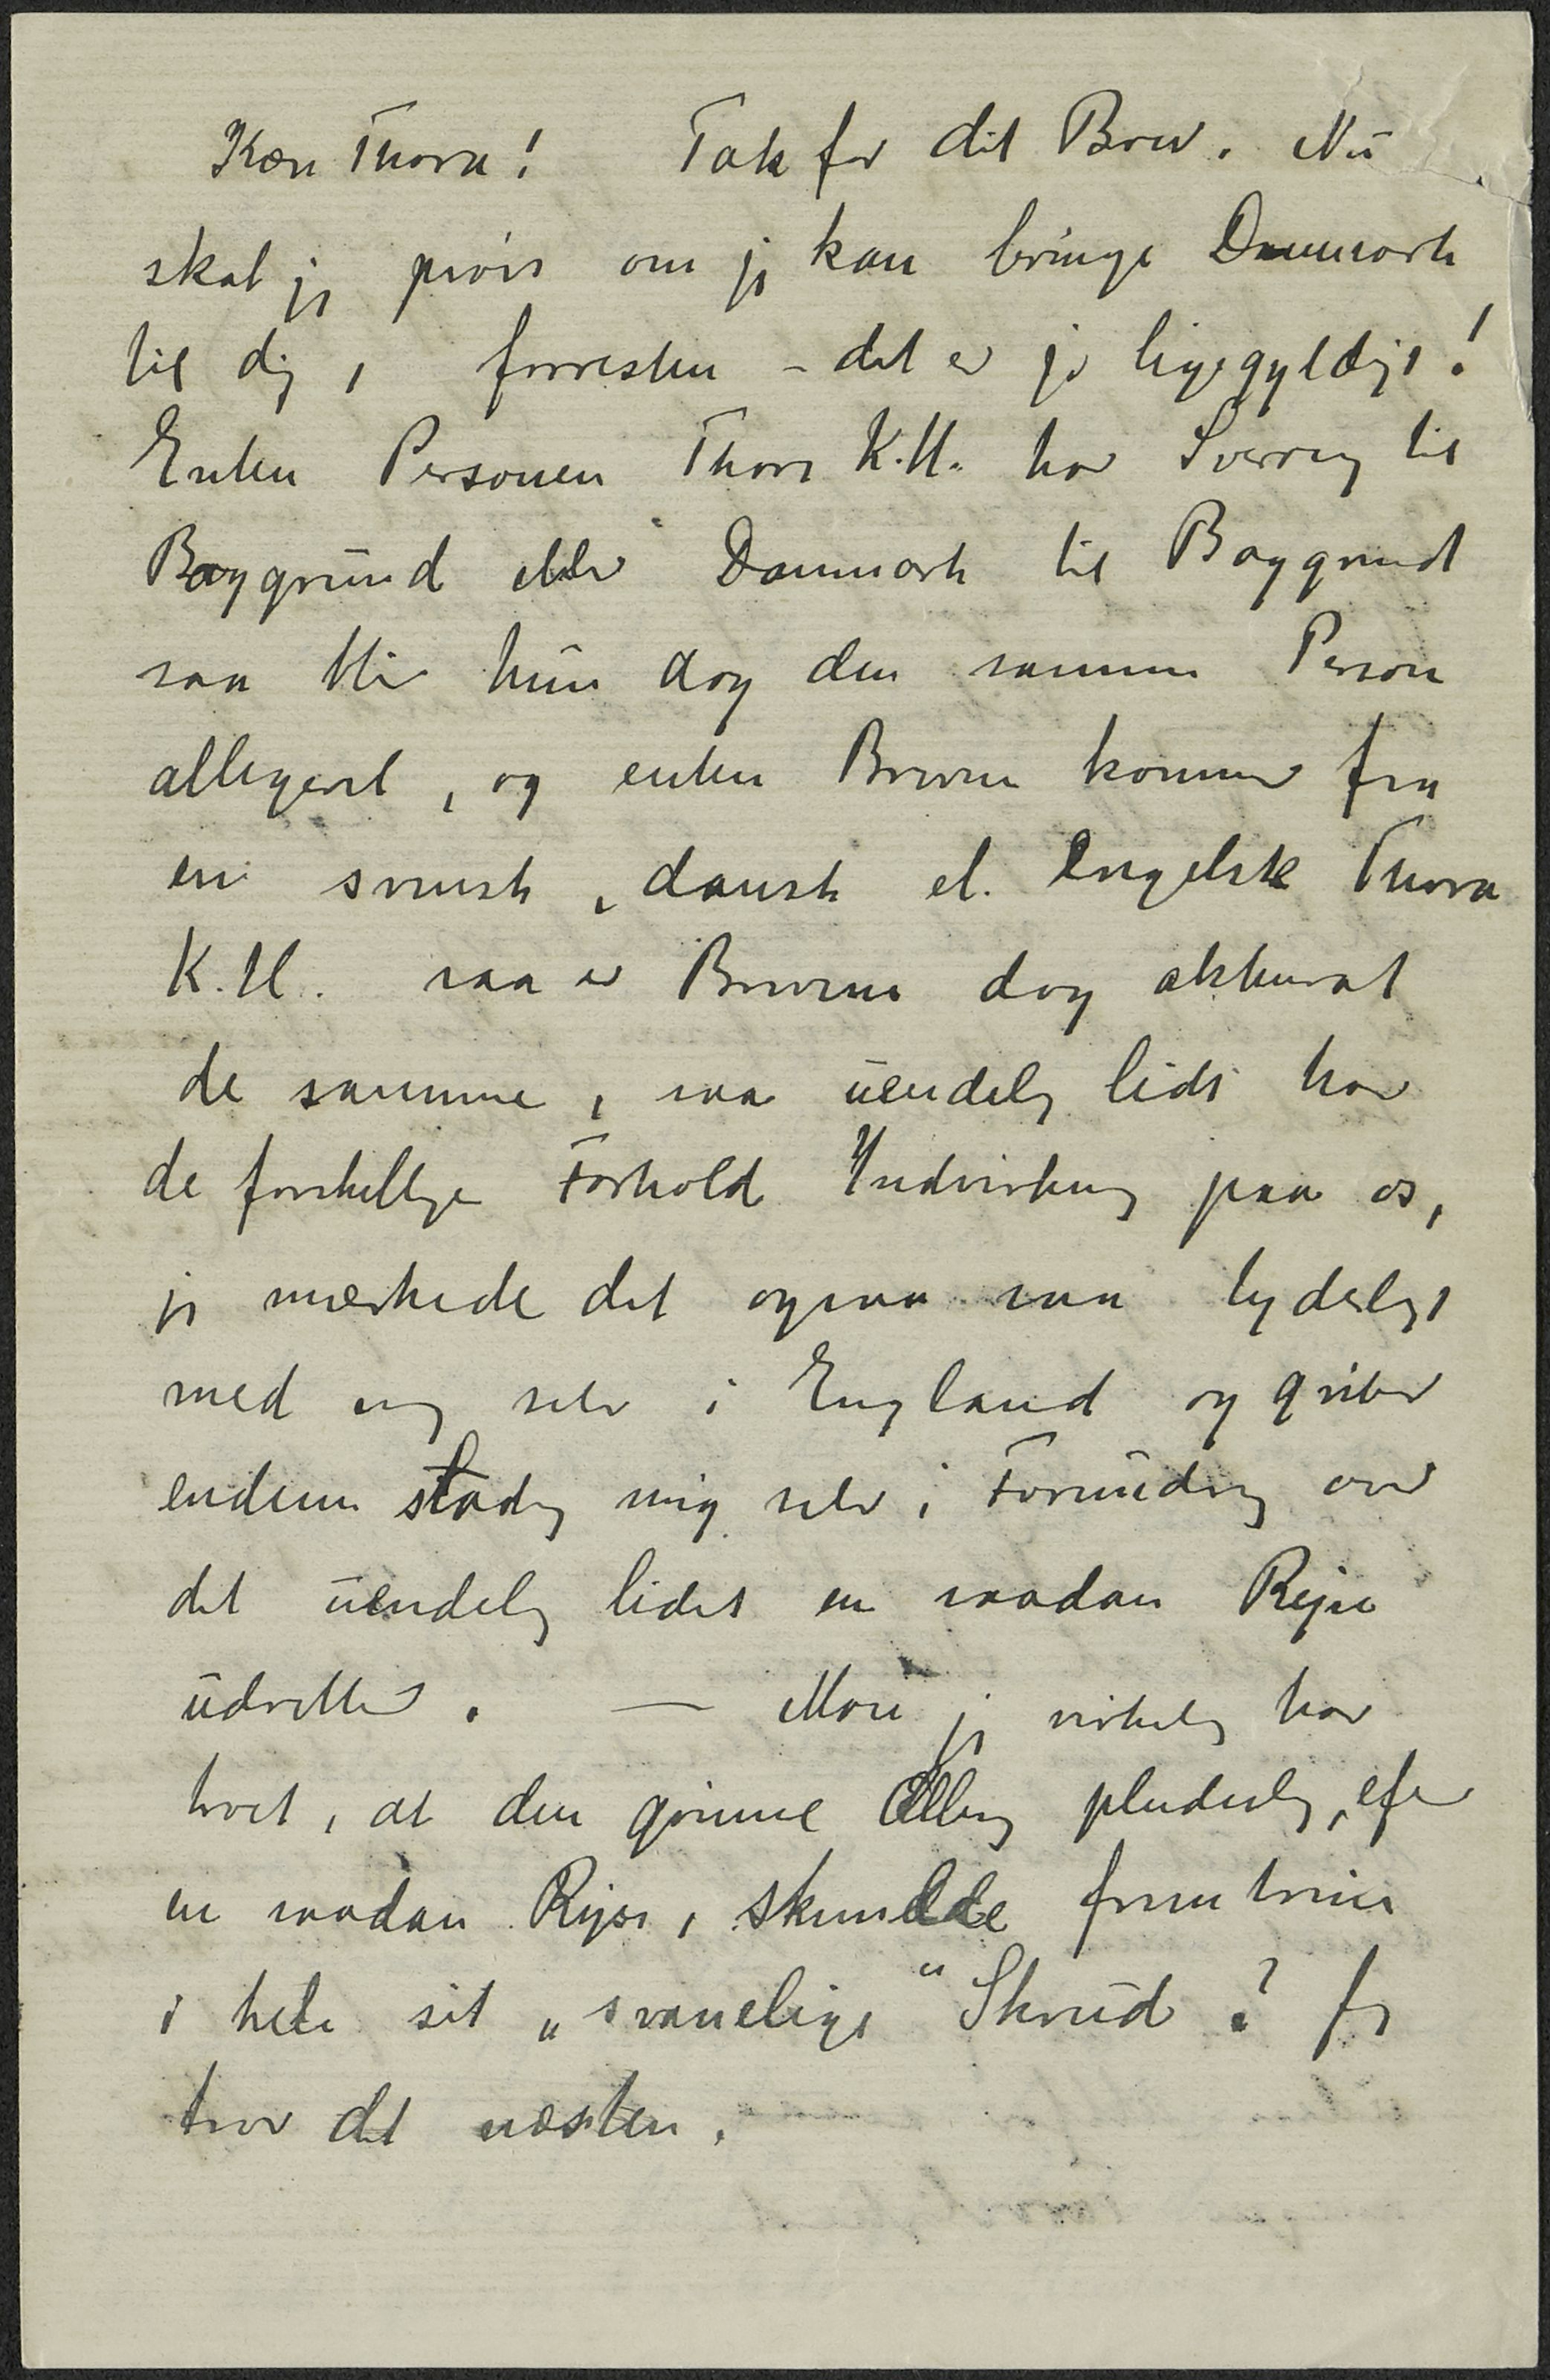 Kære Thora! Tak for dit Brev. Nu
skal jeg prøve om jeg kan bringe Danmark
til dig, forresten - det er jo ligegyldigt!
Enten Personen Thora K.H. har Sverrig til
Baggrund eller Danmark til Baggrund
saa blir hun dog den samme Person
alligevel, og enten Brevene kommer fra
en svensk, dansk el. engelsk Thora
K.H. saa er Brevene dog akkurat
de samme, saa uendelig lidt har
de forskellige Forhold Indvirkning paa os,
jeg mærkede det ogsaa saa tydeligt
med mig selv i England og griber
endnu stadig mig selv i Forundring over
det uendelig lidet en saadan Rejse
udretter. — Mon jeg virkelig har
troet, at den grimme Ælling pludselig, efter
en saadan Rejse, skulde fremtræde
i hele sit „svanelige" Skrud? Jeg
tror det næsten.